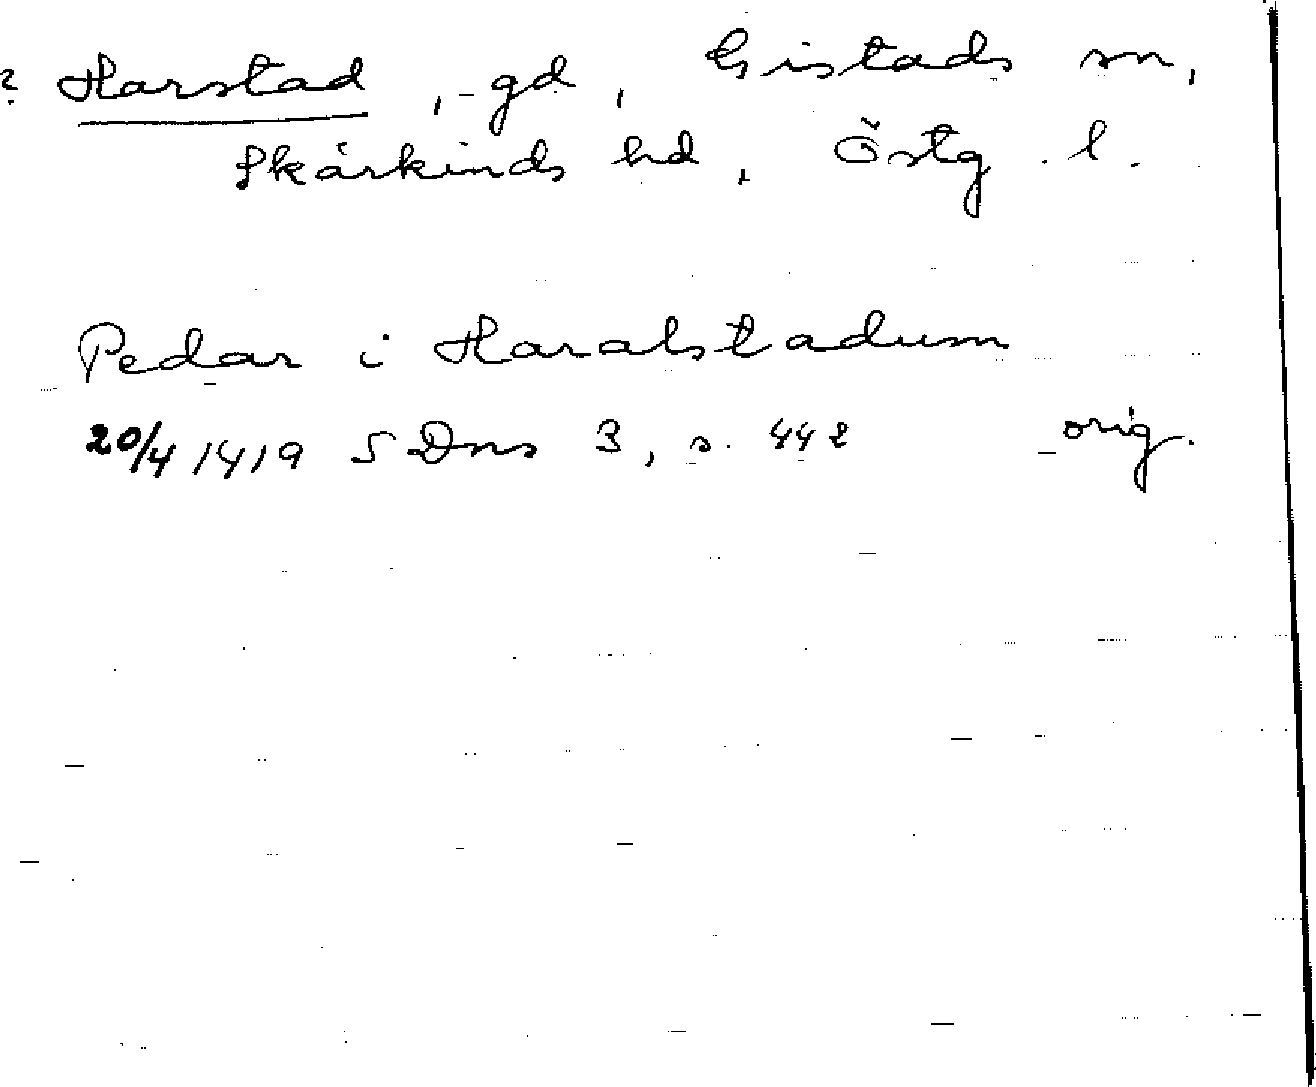 ? Harstad, gd, Gistads sn,
Skärkinds hd, Östg. l.
Pedar i Haralstadum
20/4 1419 SDns 3, s. 442 orig.